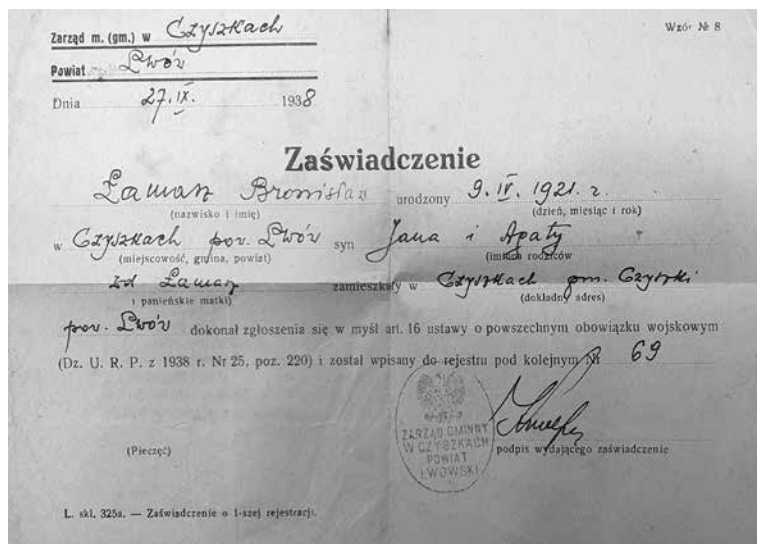 Zarząd m. (gm.) w Czyszkach
Wzór № 8
Powiat Lwów
Dnia 27.IX. 1938
Zaświadczenie
Łamasz Bronisław urodzony 9.IV.1921.r.
(nazwisko i imię) (dzień, miesiąc i rok)
w Czyszkach pow. Lwów syn Jana i Agaty
(miejscowość, gmina, powiat) (imiona rodziców
zd Łamasz zamieszkały w Czyszkach gm. Czyszki
i panieńskie matki) (dokładny adres)
pow. Lwów dokonał zgłoszenia się w myśl art. 16 ustawy o powszechnym obowiązku wojskowym
(Dz. U. R. P. z 1938 r. Nr 25, poz. 220) i został wpisany do rejestru pod kolejnym Nr 69
ZARZĄD GMINNY
W CZYSZKACH
POWIAT
LWOWSKI
(Pieczęć) podpis wydającego zaświadczenie
L. skl. 325a. — Zaświadczenie o 1-szej rejestracji.